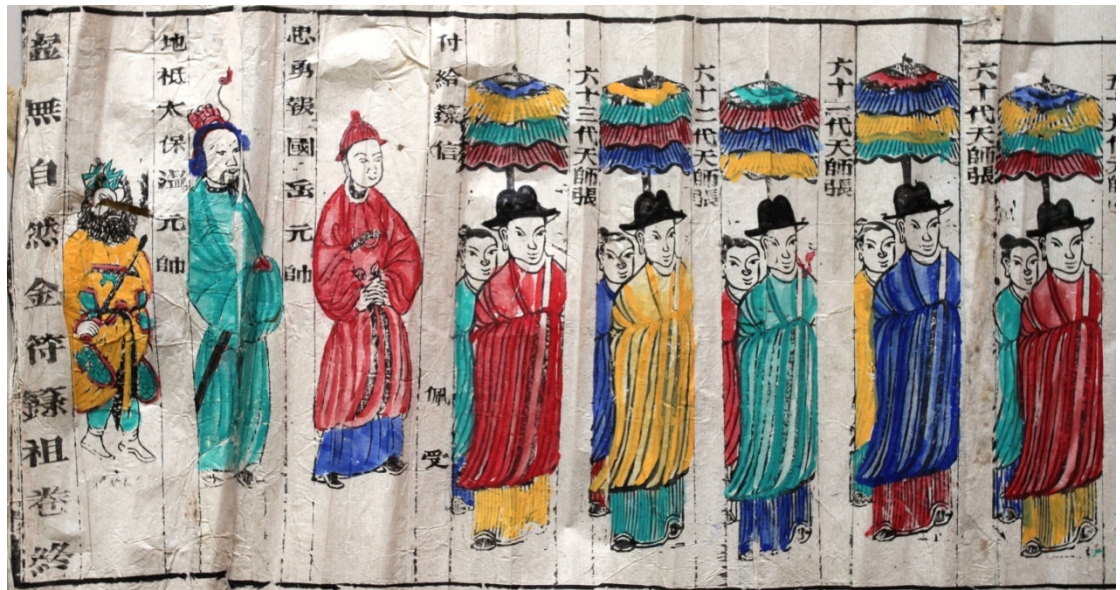 六十代天師張
六十一代天師張
六十二代天師張
六十三代天師張
付給籙信 佩受
忠勇報國岳元帥
地祇太保溫元帥
虛無自然金符籙祖卷終